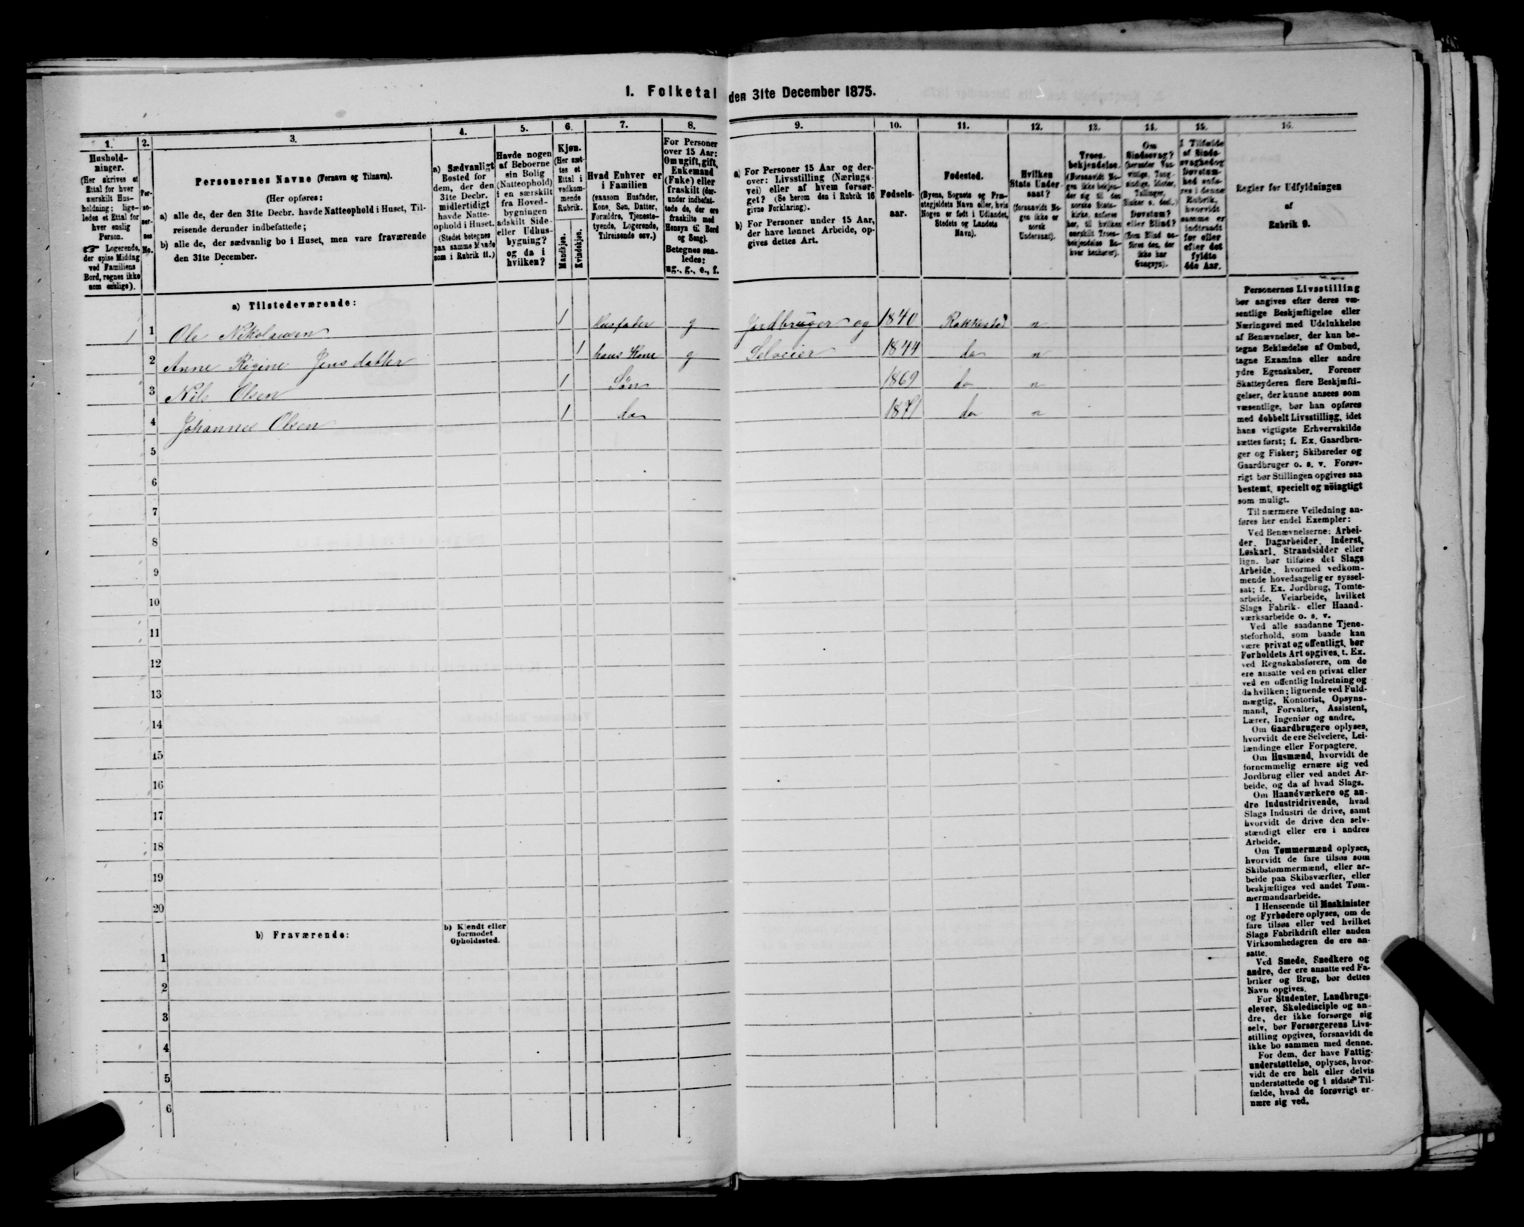 1. Folketal den 31te December 1875.
1.
2.
3.
4.
5.
6.
7.
8.
9.
10.
11.
12.
13.
14.
15.
16.
Husholdninger.
(Her skrives et Ettal for hver særskilt Husholdning; ligeledes et Ettal for hver enslig Person.
☞ Logerende, der spise Middag ved Familiens Bord, regnes ikke som enslige).
Personernes No.
Personernes Navne (Fornavn og Tilnavn).
(Her opføres:
a) alle de, der den 31te Decbr. havde Natteophold i Huset, Tilreisende derunder indbefattede;
b) alle de, der sædvanlig bo i Huset, men vare fraværende den 31te December.
a) Sædvanligt Bosted for dem, der den 31te Decbr. midlertidigt havde Natteophold i Huset.
(Stedet betegnes paa samme Maade som i Rubrik 11.)
Havde nogen af Beboerne sin Bolig (Natteophold) i en særskilt fra Hovedbygningen adskilt Side- eller Udhusbygning? og da i hvilken?
Kjøn.
(Her sættes et Ettal i vedkommende Rubrik.
Mandkjøn.
Kvindekjøn.
Hvad Enhver er i Familien
(saasom Husfader, Kone, Søn, Datter, Forældre, Tjenestetyende, Logerende, Tilreisende osv.)
For Personer over 15 Aar: Om ugift, gift, Enkemand (Enke) eller fraskilt (derunder indbefattede de, der ere fraskilte med Hensyn til Bord og Seng).
Betegnes saaledes: ug., g., e., f.
a) For Personer 15 Aar og derover: Livsstilling (Næringsvei) eller af hvem forsørget? (Se herom den i Rubrik 16 givne Forklaring).
b) For Personer under 15 Aar, der have lønnet Arbeide, opgives dettes Art.
Fødselsaar.
Fødested.
(Byens, Sognets og Præstegjeldets Navn eller, hvis Nogen er født i Udlandet, Stedets og Landets Navn).
Hvilken Stats Undersaat?
(forsaavidt Nogen ikke er norsk Undersaat).
Troesbekjendelse.
Regler for Udfyldningen
af
Rubrik 9.
a) Tilstedeværende:
1 1 Ole Nikolaisen 1 Husfader g Jordbruger og 1840 Rakkestad n
2 Anne Regine Jensdatter 1 hans Kone g Selveier 1844 do n
3 Nils Olsen 1 Søn 1869 do n
4 Johannes Olsen 1 do 1871 do n
5
6
7
8
9
10
11
12
13
14
15
16
17
18
19
20
b) Fraværende:
b) Kjendt eller formodet Opholdssted.
1
2
3
4
5
6
Personernes Livsstilling
bør angives efter deres væ-
sentlige Beskjæftigelse eller
Næringsvei med Udelukkelse
af Benævnelser, der kun be-
tegne Beklædelse af Ombud,
tagne Examina eller andre
ydre Egenskaber. Forener
Skatteyderen flere Beskjæfti-
gelser, der kunne ansees som
væsentlige, bør han opføres
med dobbelt Livsstilling, idet
hans vigtigste Erhvervskilde
sættes først; f. Ex. Gaardbru-
ger og Fisker; Skibsreder og
Gaardbruger o. s. v. Forøv-
rigt bør Stillingen opgives saa
bestemt, specielt og nöiagtigt
som muligt.
Til nærmere Veiledning an-
føres her endel Exempler:
Ved Benævnelserne: Arbei-
der, Dagarbeider, Inderst,
Løskarl, Strandsidder eller
lign. bør tilføies det Slags
Arbeide, hvormed vedkom-
mende hovedsagelig er syssel-
sat; f. Ex. Jordbrug, Tomte-
arbeide, Veiarbeide, hvilket
Slags Fabrik- eller Haand-
værksarbeide o. s. v.
Ved alle saadanne Tjene-
steforhold, som baade kan
være privat og offentligt, bør
Forholdets Art opgives, t. Ex.
ved Regnskabsførere, om de
ere ansatte ved en privat eller
ved en offentlig Indretning og
da hvilken; lignende ved Fuld-
mægtig, Kontorist, Opsyns-
mand, Forvalter, Assistent,
Lærer, Ingeniør og andre.
Om Gaardbrugere oplyses,
hvorvidt de ere Selveiere, Lei-
lændinge eller Forpagtere.
Om Husmænd, hvorvidt de
fornemmelig ernære sig ved
Jordbrug eller ved andet Ar-
beide, og da af hvad Slags.
Om Haandværkere og an-
dre Industridrivende, hvad
Slags Industri de drive, samt
hvorvidt de drive den selv-
stændigt eller ere i andres
Arbeide.
Om Tømmermænd oplyses,
hvorvidt de fare tilsøs som
Skibstømmermænd, eller ar-
beide paa Skibsværfter, eller
beskjæftiges ved andet Tøm-
mermandsarbeide.
I Henseende til Maskinister
og Fyrbødere oplyses, om de
fare tilsøs eller ved hvilket
Slags Fabrikdrift eller anden
Virksomhedsgren de ere an-
satte.
Ved Smede, Snedkere og
andre, der ere ansatte ved Fa-
briker og Brug, bør dettes
Navn opgives.
For Studenter, Landbrugs-
elever, Skoledisciple og an-
dre, der ikke forsørge sig
selv, bør Forsørgerens Livs-
stilling opgives, forsaavidt de
ikke bo sammen med denne.
For dem, der have Fattig-
understøttelse, oplyses, hvor-
vidt de ere helt eller delvis
understøttede og i sidste Til-
fælde, hvad de forøvrigt er-
nære sig ved.